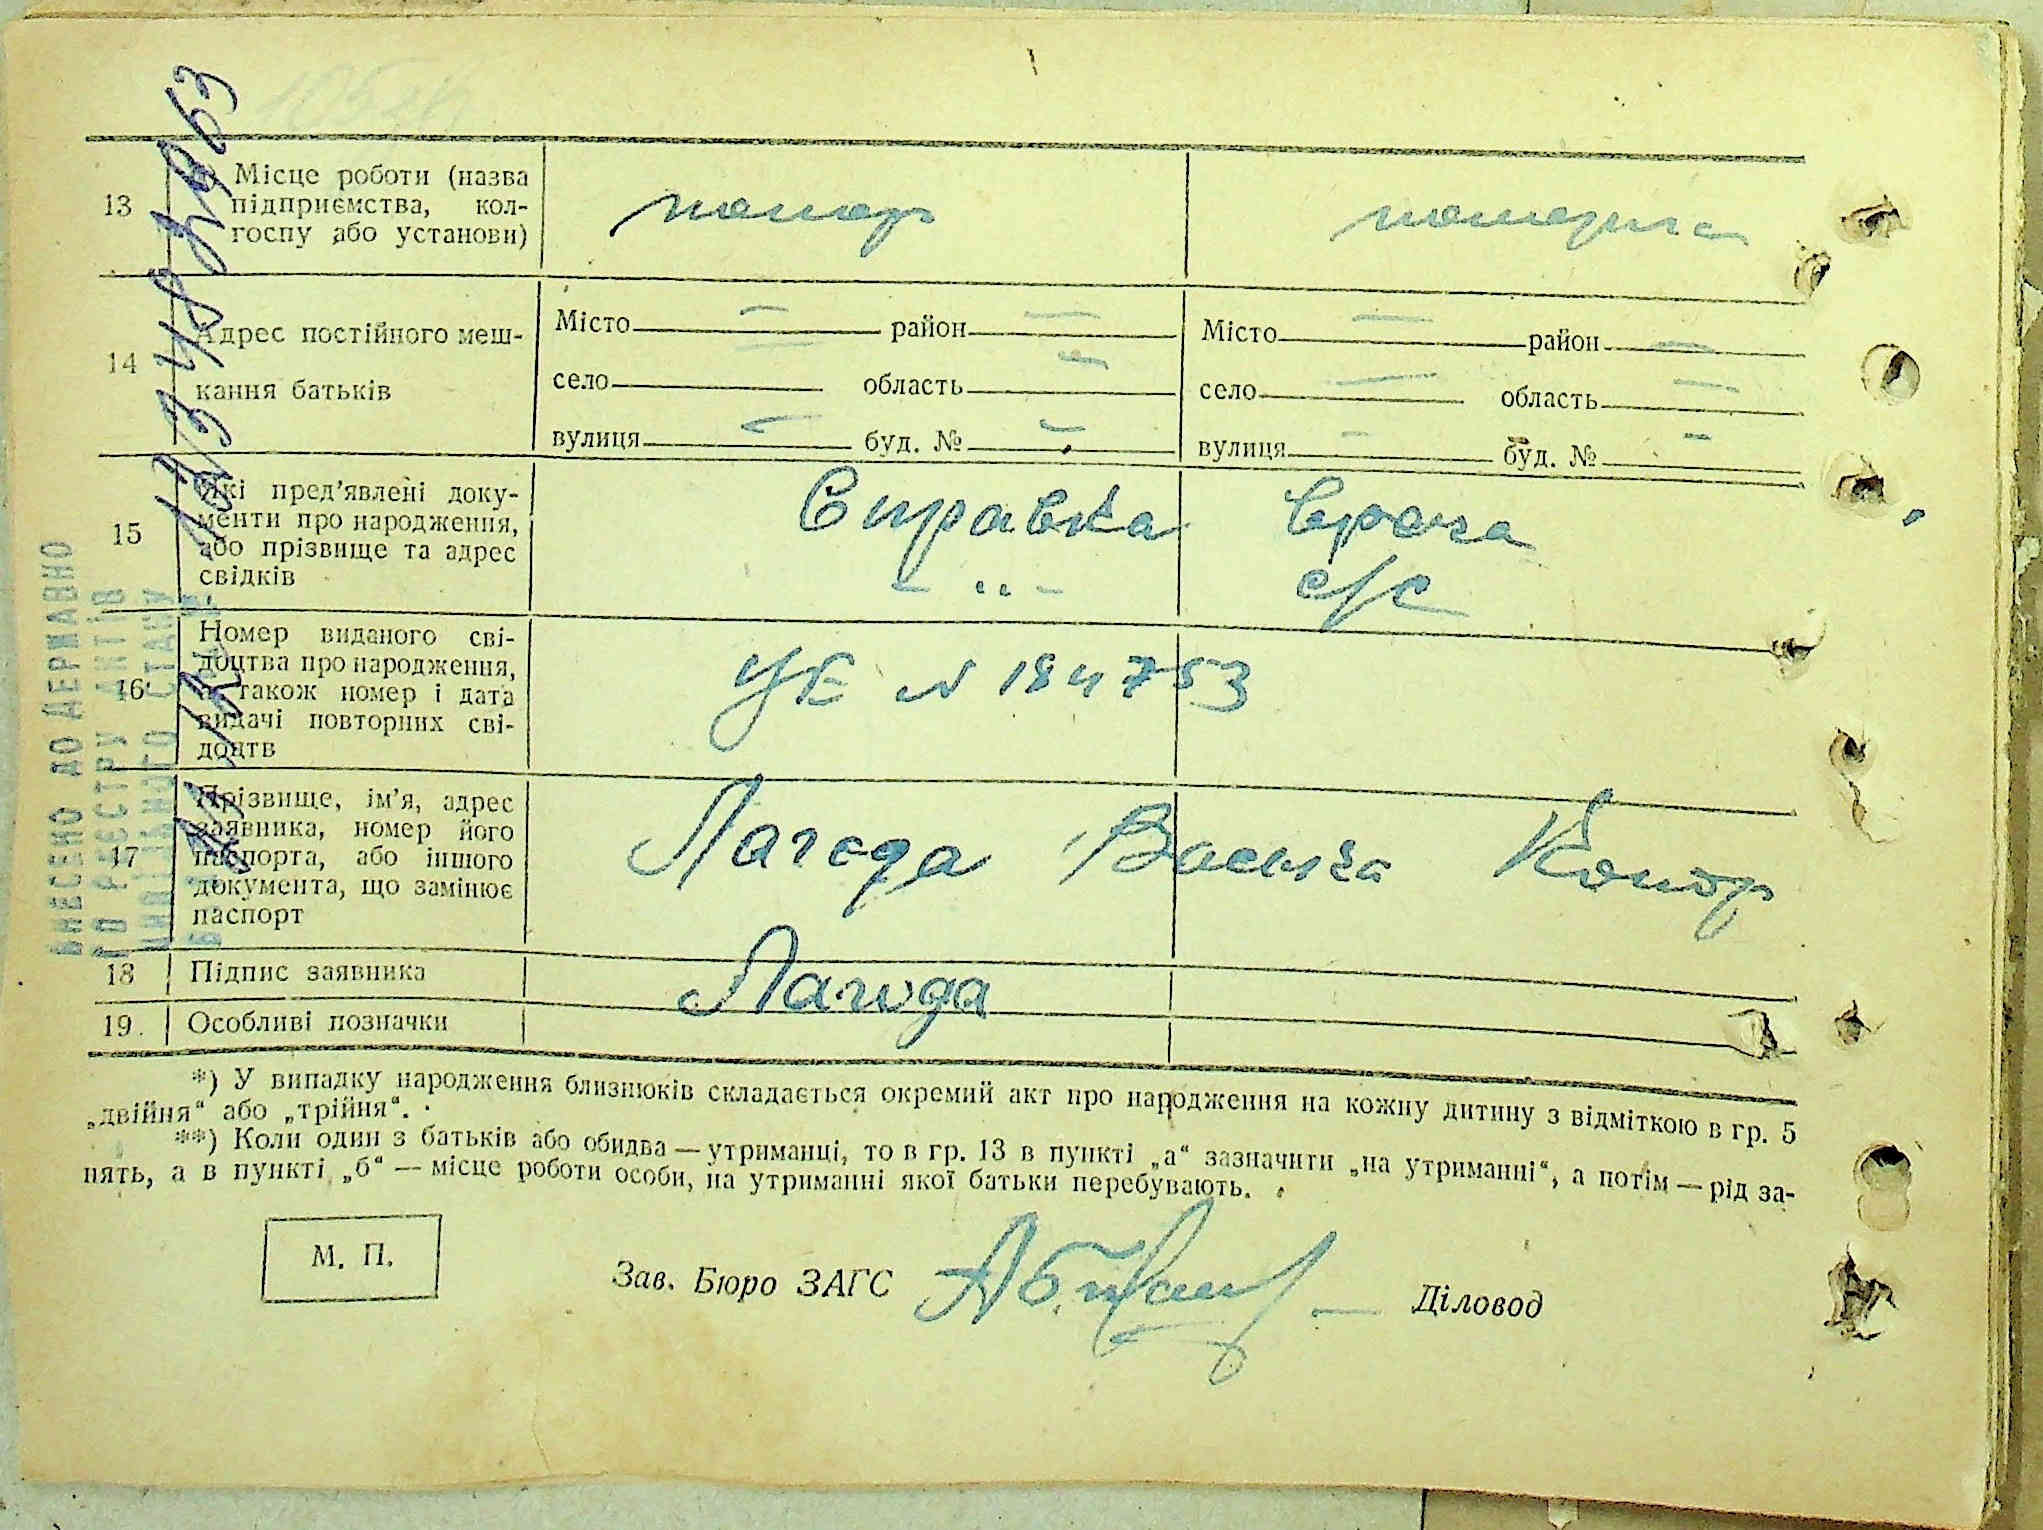 13
б) Місце роботи (назва
підприємства, кол-
госпу або установи)
14
Адрес постійного меш-
кання батьків
Місто район Місто район
село область село область
вулиця буд. № вулиця буд. №
15
Які пред'явлені доку-
менти про народження,
або прізвище та адрес
свідків
Справка Врача
- „ - с/с
16
Номер виданого сві-
доцтва про народження,
а також номер і дата
видачі повторних сві-
доцтв
УЕ № 184753
17
Прізвище, ім'я, адрес
заявника, номер його
паспорта, або іншого
документа, що замінює
паспорт
Лагода
18 Підпис заявника
Лагода
19. Особливі позначки
*) У випадку народження близнюків складається окремий акт про народження на кожну дитину з відміткою в гр. 5
„двійня“ або „трійня“.
**) Коли один з батьків або обидва — утриманці, то в гр. 13 в пункті „а“ зазначити „на утриманні“, а потім — рід за-
нять, а в пункті „б“ — місце роботи особи, на утриманні якої батьки перебувають.
М. П.
Зав. Бюро ЗАГС Діловод
ВНЕСЕНО ДО ДЕРЖАВНО
ГО РЕЄСТРУ АКТІВ
ЦИВІЛЬНОГО СТАНУ